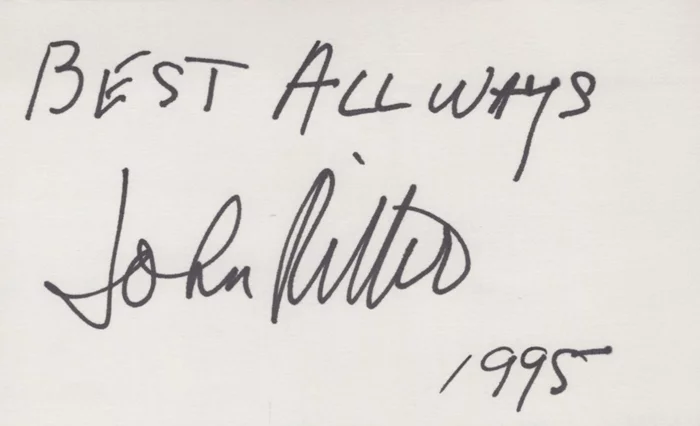 BEST ALLWAYS
John Ritter
1995